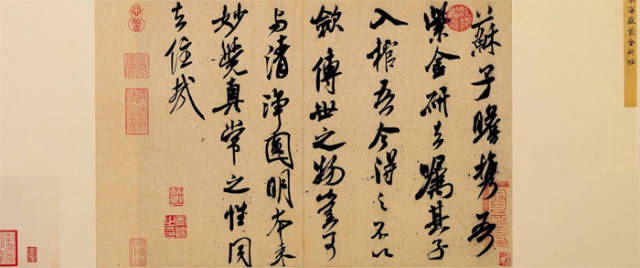 蘇子瞻携吾
紫金研去嘱其子
入棺吾今得之不以
斂傳世之物豈可
與清淨圓明本來
妙覺真常之性同
去住哉